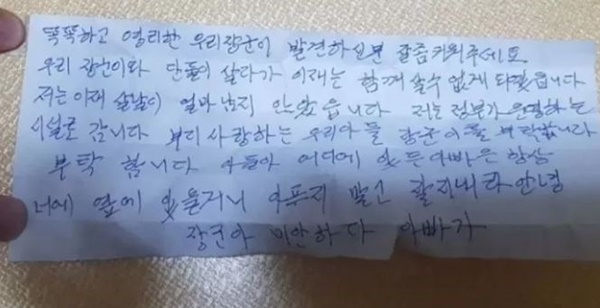 똑똑하고 영리한 우리장군이 발견하신분 잘좀키워주세요
우리 장군이와 단둘이 살다가 이재는 함께 살수 없게 되였읍니다
저는 이재 살날이 얼마 남지 안았읍니다 저는 정부가 운영하는
시설로 갑니다 부디 사랑하는 우리아들 장군이를 부탁합니다
부탁 합니다 아들아 어디에 있든 아빠은 항상
너에 옆에 있을거니 아푸지 말고 잘지내라 안녕
장군아 미안하다 아빠가